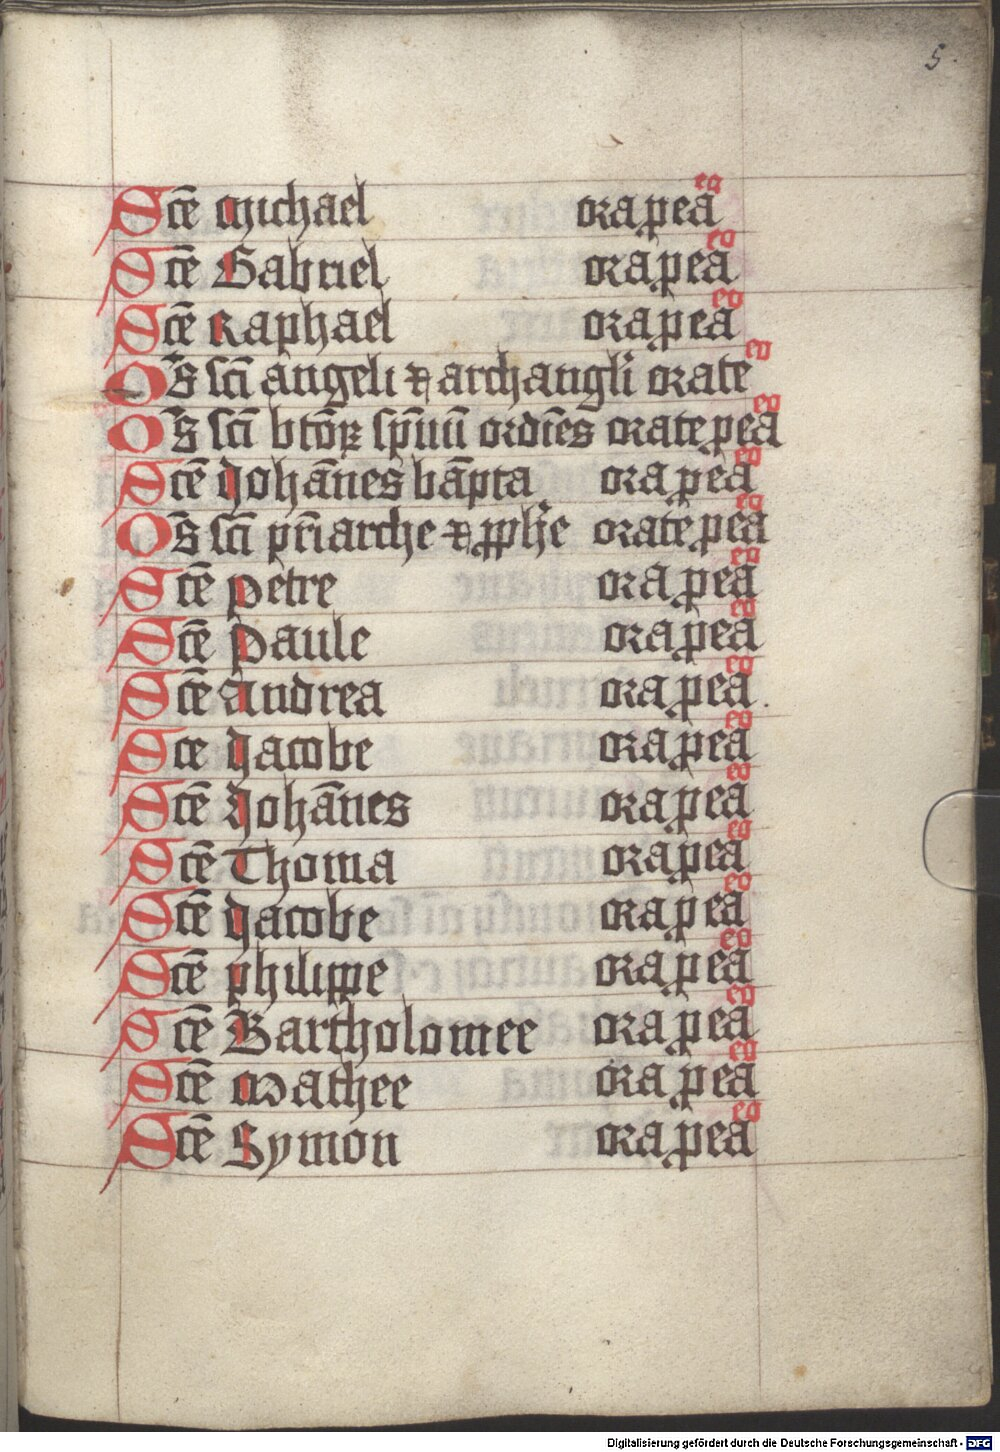 5.
Scē Michael ora p ea eo
Scē Gabriel ora p ea eo
Scē Raphael ora p ea eo
Os̄ sci angeli ⁊ archangli orate eo
Os̄ sci btōꝝ sp̄uū ordīes orate p ea eo
Scē Johānes bāpta ora p ea eo
Os̄ sci pr̄iarche ⁊ ꝓphe orate p ea eo
Scē petre ora p ea eo
Scē Paule ora p ea eo
Scē Andrea ora p ea eo
Sce Jacobe ora p ea eo
Scē Johānes ora p ea eo
Scē Thoma ora p ea eo
Scē Jacobe ora p ea eo
Scē philippe ora p ea eo
Scē Bartholomee ora p ea eo
Scē Mathee ora p ea eo
Scē Symon ora p ea eo
Digitalisierung gefördert durch die Deutsche Forschungsgemeinschaft - DFG